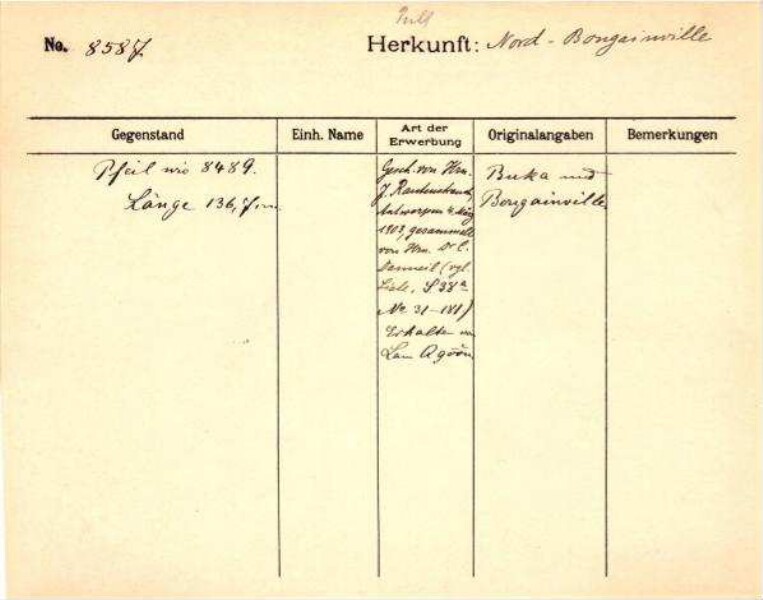 No. 8587
Herkunft: Nord-Bougainville
Gegenstand
Einh. Name
Art der
Erwerbung
Originalangaben
Bemerkungen
Pfeil wie 8489.
Länge 136,7 cm
Gesch. von Hrn.
J. Rautenstrauch,
Antwerpen 4. März
1903, gesammelt
von Hrn. Dr C.
Danneil (vgl.
Liste, S 38a
No 31-181)
Erhalten von
Buka und
Bougainville